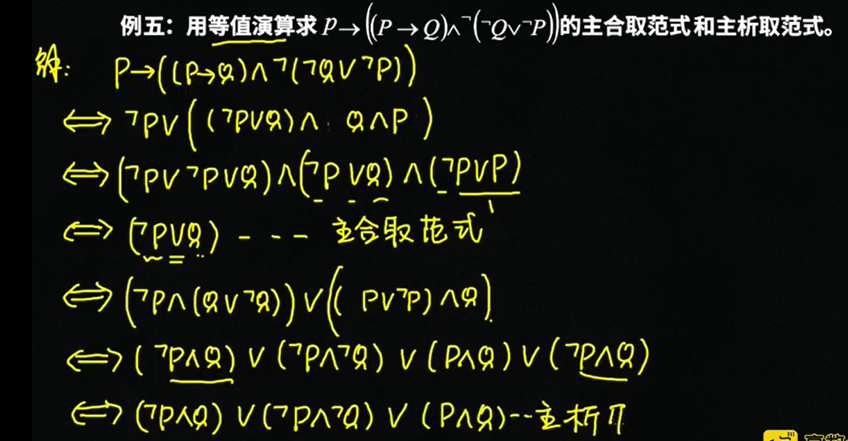 例五：用等值演算求 P→((P→Q)∧¬(¬Q∨¬P))的主合取范式和主析取范式。
解： P→((P→Q)∧¬(¬Q∨¬P))
⟺ ¬P∨((¬P∨Q)∧ Q∧P)
⟺ (¬P∨¬P∨Q)∧(¬P∨Q)∧(¬P∨P)
1
⟺ (¬P∨Q) --- 主合取范式
⟺ (¬P∧(Q∨¬Q))∨((P∨¬P)∧Q)
⟺ (¬P∧Q)∨(¬P∧¬Q)∨(P∧Q)∨(¬P∧Q)
⟺ (¬P∧Q)∨(¬P∧¬Q)∨(P∧Q)--主析